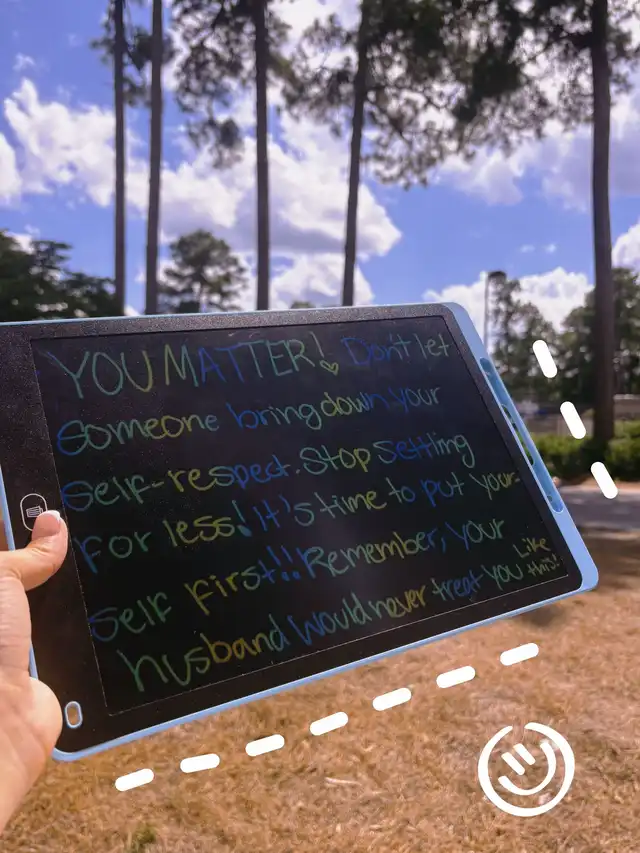 YOU MATTER! Don't let
Someone bring down your
Self-respect. Stop Settling
For less! It's time to put your-
self first!! Remember, your
husband would never treat you Like this!!